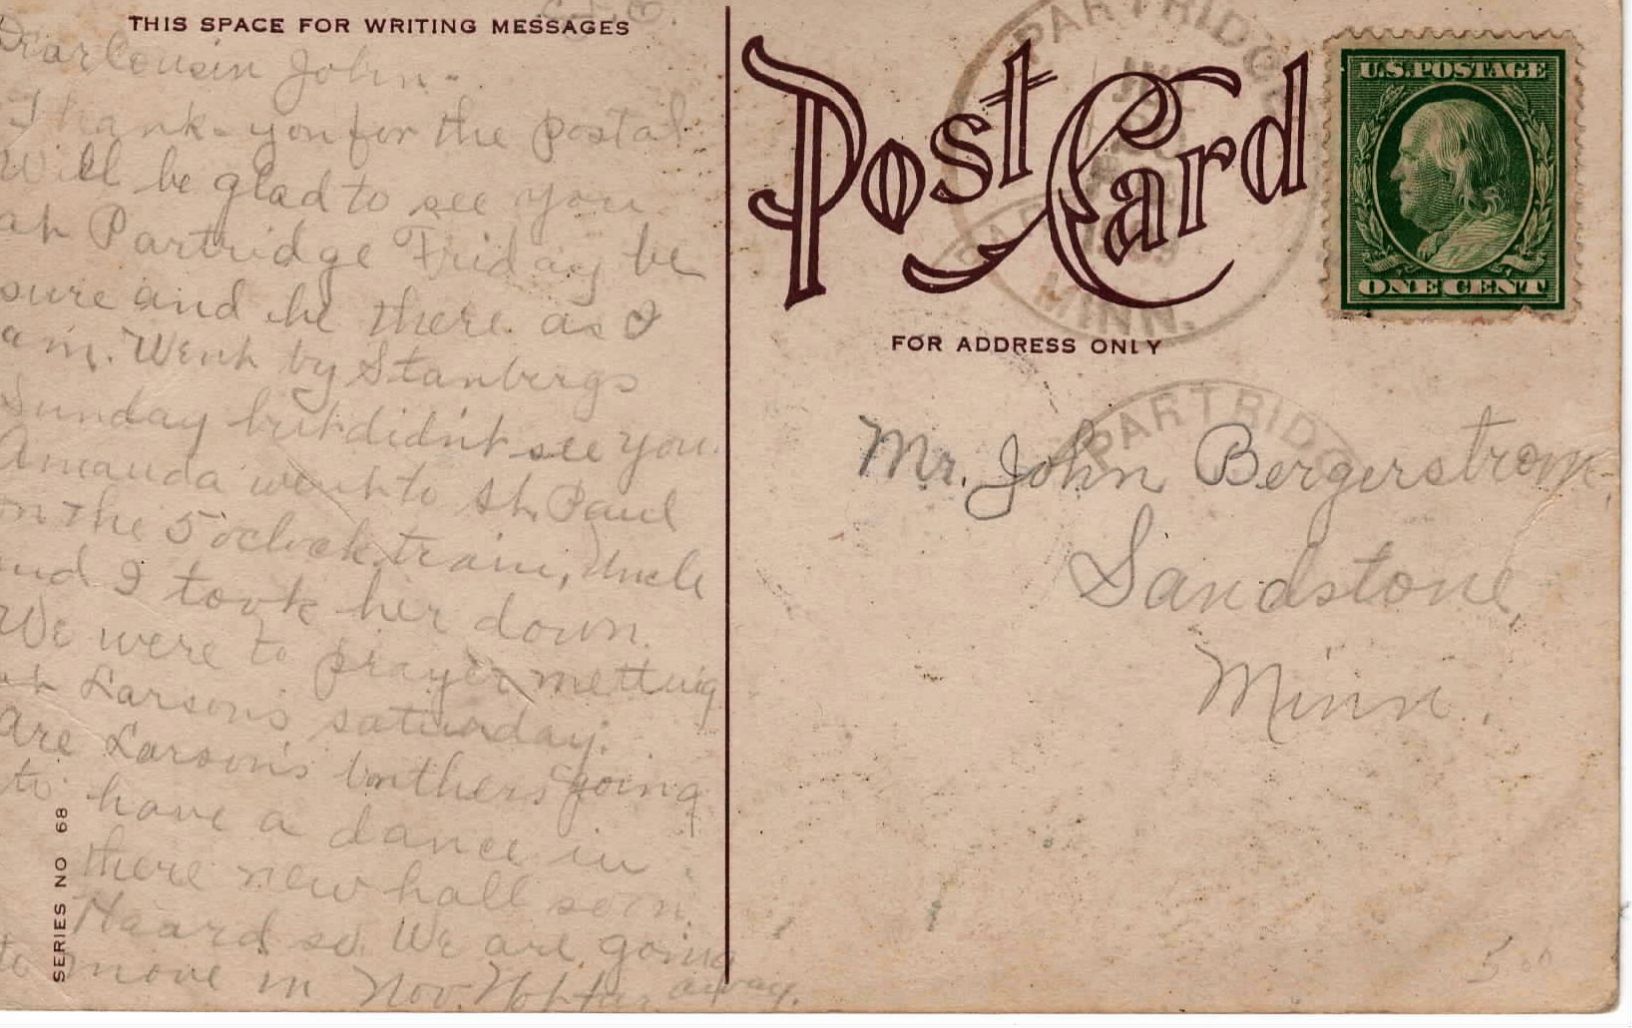 THIS SPACE FOR WRITING MESSAGES
Dear Cousin John.
Thank-you for the postal
Will be glad to see you
at Partridge Friday be
sure and be there as I
am. Went by Stanbergs
Sunday but didn't see you.
Amanda went to St. Paul
on the 5 oclock train, Uncle
and I took her down.
We were to prayer metting
at Larson's saturday.
Are Larson's brothers going
to have a dance in
there new hall soon.
Haard so. We are going
to move in Nov. Not far away.
SERIES NO 68
Post Card
PARTRIDGE
MINN.
U.S. POSTAGE
ONE CENT
FOR ADDRESS ONLY
PARTRIDG
Mr. John Bergerstrom,
Sandstone,
Minn.
5 00